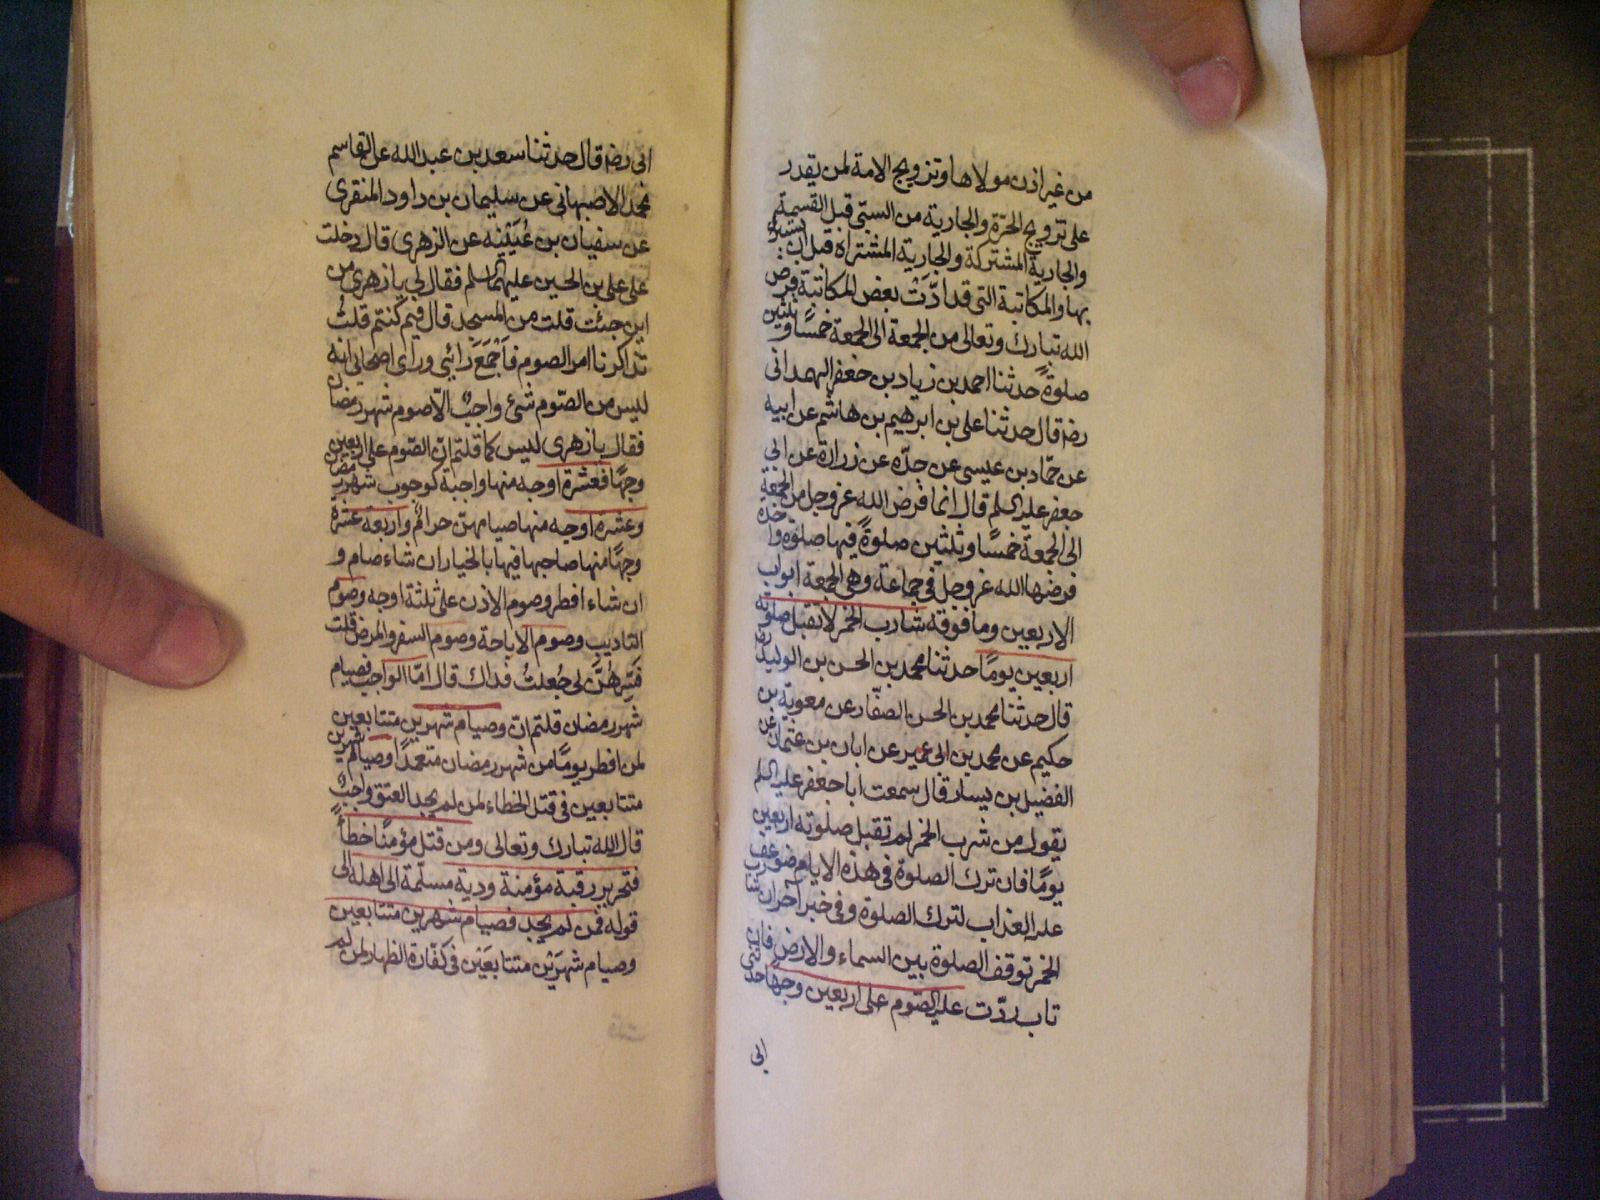 من غير اذن مولاها وتزويج الامة لمن يقدر
على تزويج الحرّة والجارية من السبى قبل القسمة
والجارية المشتركة والجارية المشتراة قبل ان يستبرئ
بها والمكاتبة التى قد ادّت بعض المكاتبة فرض
الله تبارك وتعالى من الجمعة الى الجمعة خمسًا وثلثين
صلوةً حدثنا احمد بن زياد بن جعفر الهمدانى
رضه قال حدثنا على بن ابرهيم بن هاشم عن ابيه
عن حمّاد بن عيسى عن حدّه عن زرارة عن ابى
جعفر عليه السلم قال انما فرض الله عز وجل من الجمعة
الى الجمعة خمسًا وثلثين صلوةً فيها صلوة واحدة
فرضها الله عز وجل فى جماعة وهى الجمعة ابواب
الاربعين وما فوقه شارب الخمر لا تقبل صلوته
اربعين يومًا حدثنا محمد بن الحسن بن الوليد رضه
قال حدثنا محمد بن الحسن الصفّار عن معوية بن
حكيم عن محمد بن ابى عمير عن ابان بن عثمان عن
الفضيل بن يسار قال سمعت ابا جعفر عليه السلم
يقول من شرب الخمر لم تقبل صلوته اربعين
يومًا فان ترك الصلوة فى هذه الايام ضوعف
عليه العذاب لترك الصلوة وفى خبر آخر ان شارب
الخمر توقف الصلوة بين السماء والارض فان
تاب ردّت عليه الصوم على اربعين وجهًا حدثنى
ابى
ابى رضه قال حدثنا سعد بن عبد الله عن القاسم
محمد الاصبهانى عن سليمان بن داود المنقرى
عن سفيان بن عُيَيْنه عن الزهرى قال دخلت
على على بن الحسين عليهما السلم فقال لى يا زهرى من
اين جئت قلت من المسجد قال فيم كنتم قلتُ
تذاكرنا امر الصوم فاَجْمَعَ رائى وراى اصحابى انه
لليس من الصّوم شئ واجبٌ الّا صوم شهر رمضان
فقال يا زهرى ليس كما قلتم انّ الصّوم على اربعين
وجهًا فعشرة اوجه منها واجبة كوجوب شهر رمضان
وعشرة اوجه منها صيامهنّ حرامٌ واربعة عشرة
وجهًا منها صاحبها فيها بالخيار ان شاء صام و
ان شاء افطر وصوم الاذن على ثلثة اوجه وصوم
التاديب وصوم الاباحة وصوم السفر والمرض قلت
فَسّرهُنَّ لى جُعلتُ فداك قال امّا الواجب فصيام
شهر رمضان قلتم ان وصيام شهرين متتابعين
لمن افطر يومًا من شهر رمضان متعمدًا وصيام شهرين
متتابعين فى قتل الخطاء لمن لم يجد العتق واجبٌ
قال الله تبارك وتعالى ومن قتل مؤمنًا خطأً
فتحرير رقبة مؤمنة ودية مسلّمة الى اهله الى
قوله فمن لم يجد فصيام شهرين متتابعين
وصيام شهرَيْن متتابعَيْن فى كفّارة الظهار لمن لم